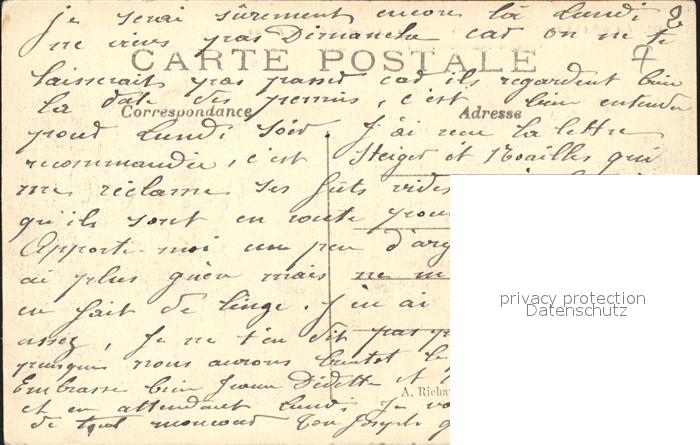 je serai sûrement encore là Lundi
ne viens pas Dimanche car on ne te
CARTE POSTALE
laisserait pas passer car ils regardent bien
la date des permis, c'est bien entendu
Correspondance Adresse
pour Lundi soir. J'ai reçu la lettre
recommandée, c'est Steiger et Noailles qui
me réclame ses fûts vides
qu'ils sont en route pour
Apporte-moi un peu d'arg
ai plus guère mais ne m
en fait de linge. J'en ai
assez, Je ne t'en dit pas p
puisque nous aurons bientot le
Embrasse bien Jeanne Dédette et
A. Richa
et en attendant Lundi je vo
de tout mon cœur Ton Joseph q
privacy protection
Datenschutz